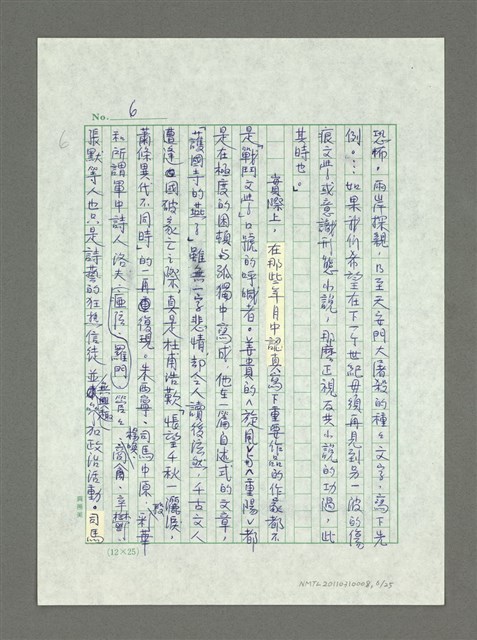 No. 6
6
恐怖，兩岸探親，乃至天安門大屠殺的種々文字，寫下先
例。…如果我們希望在下一个世紀毋須再見到另一波的傷
痕文學或意識形態小說，那麼正視反共小說的功過，此
其時也」。
實際上，在那些年月中認真寫下重要作品的作家都不
是「戰鬥文學」口號的呼喊者。姜貴的〈旋風〉与〈重陽〉都
是在極度的困頓与孤獨中寫成，他在一篇自述式的文章，
「護國寺的燕子」雖無一字悲情，却令人讀後泫然，千古文人
遭逢國破家亡之際，真是杜甫浩歎「悵望千秋一灑淚，
蕭條異代不同時」的一再重復現。朱西甯、司馬中原、段彩華
和所謂軍中詩人洛夫、瘂弦、羅門、楊喚、商禽、辛鬱、
張默等人也只是詩藝的狂熱信徒，並無興趣參加政治活動。司馬
(12×25)
NMTL20110310008, 6/25